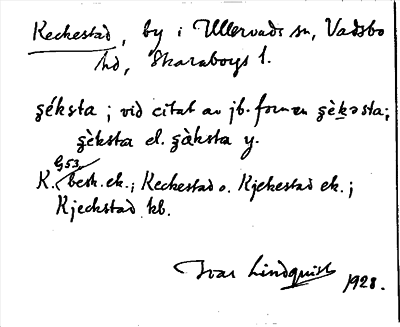 Keckestad, by i Ullervads sn, Vadsbo
hd, Skaraborgs l.
ʒéksta; vid citat av jb. formen ʒèkəsta;
ʒèksta el. ʒàksta y.
G53
K. besk. ek.; Keckestad o. Kjekestad ek.;
Kjeckstad kb.
Ivar Lindquist 1928.